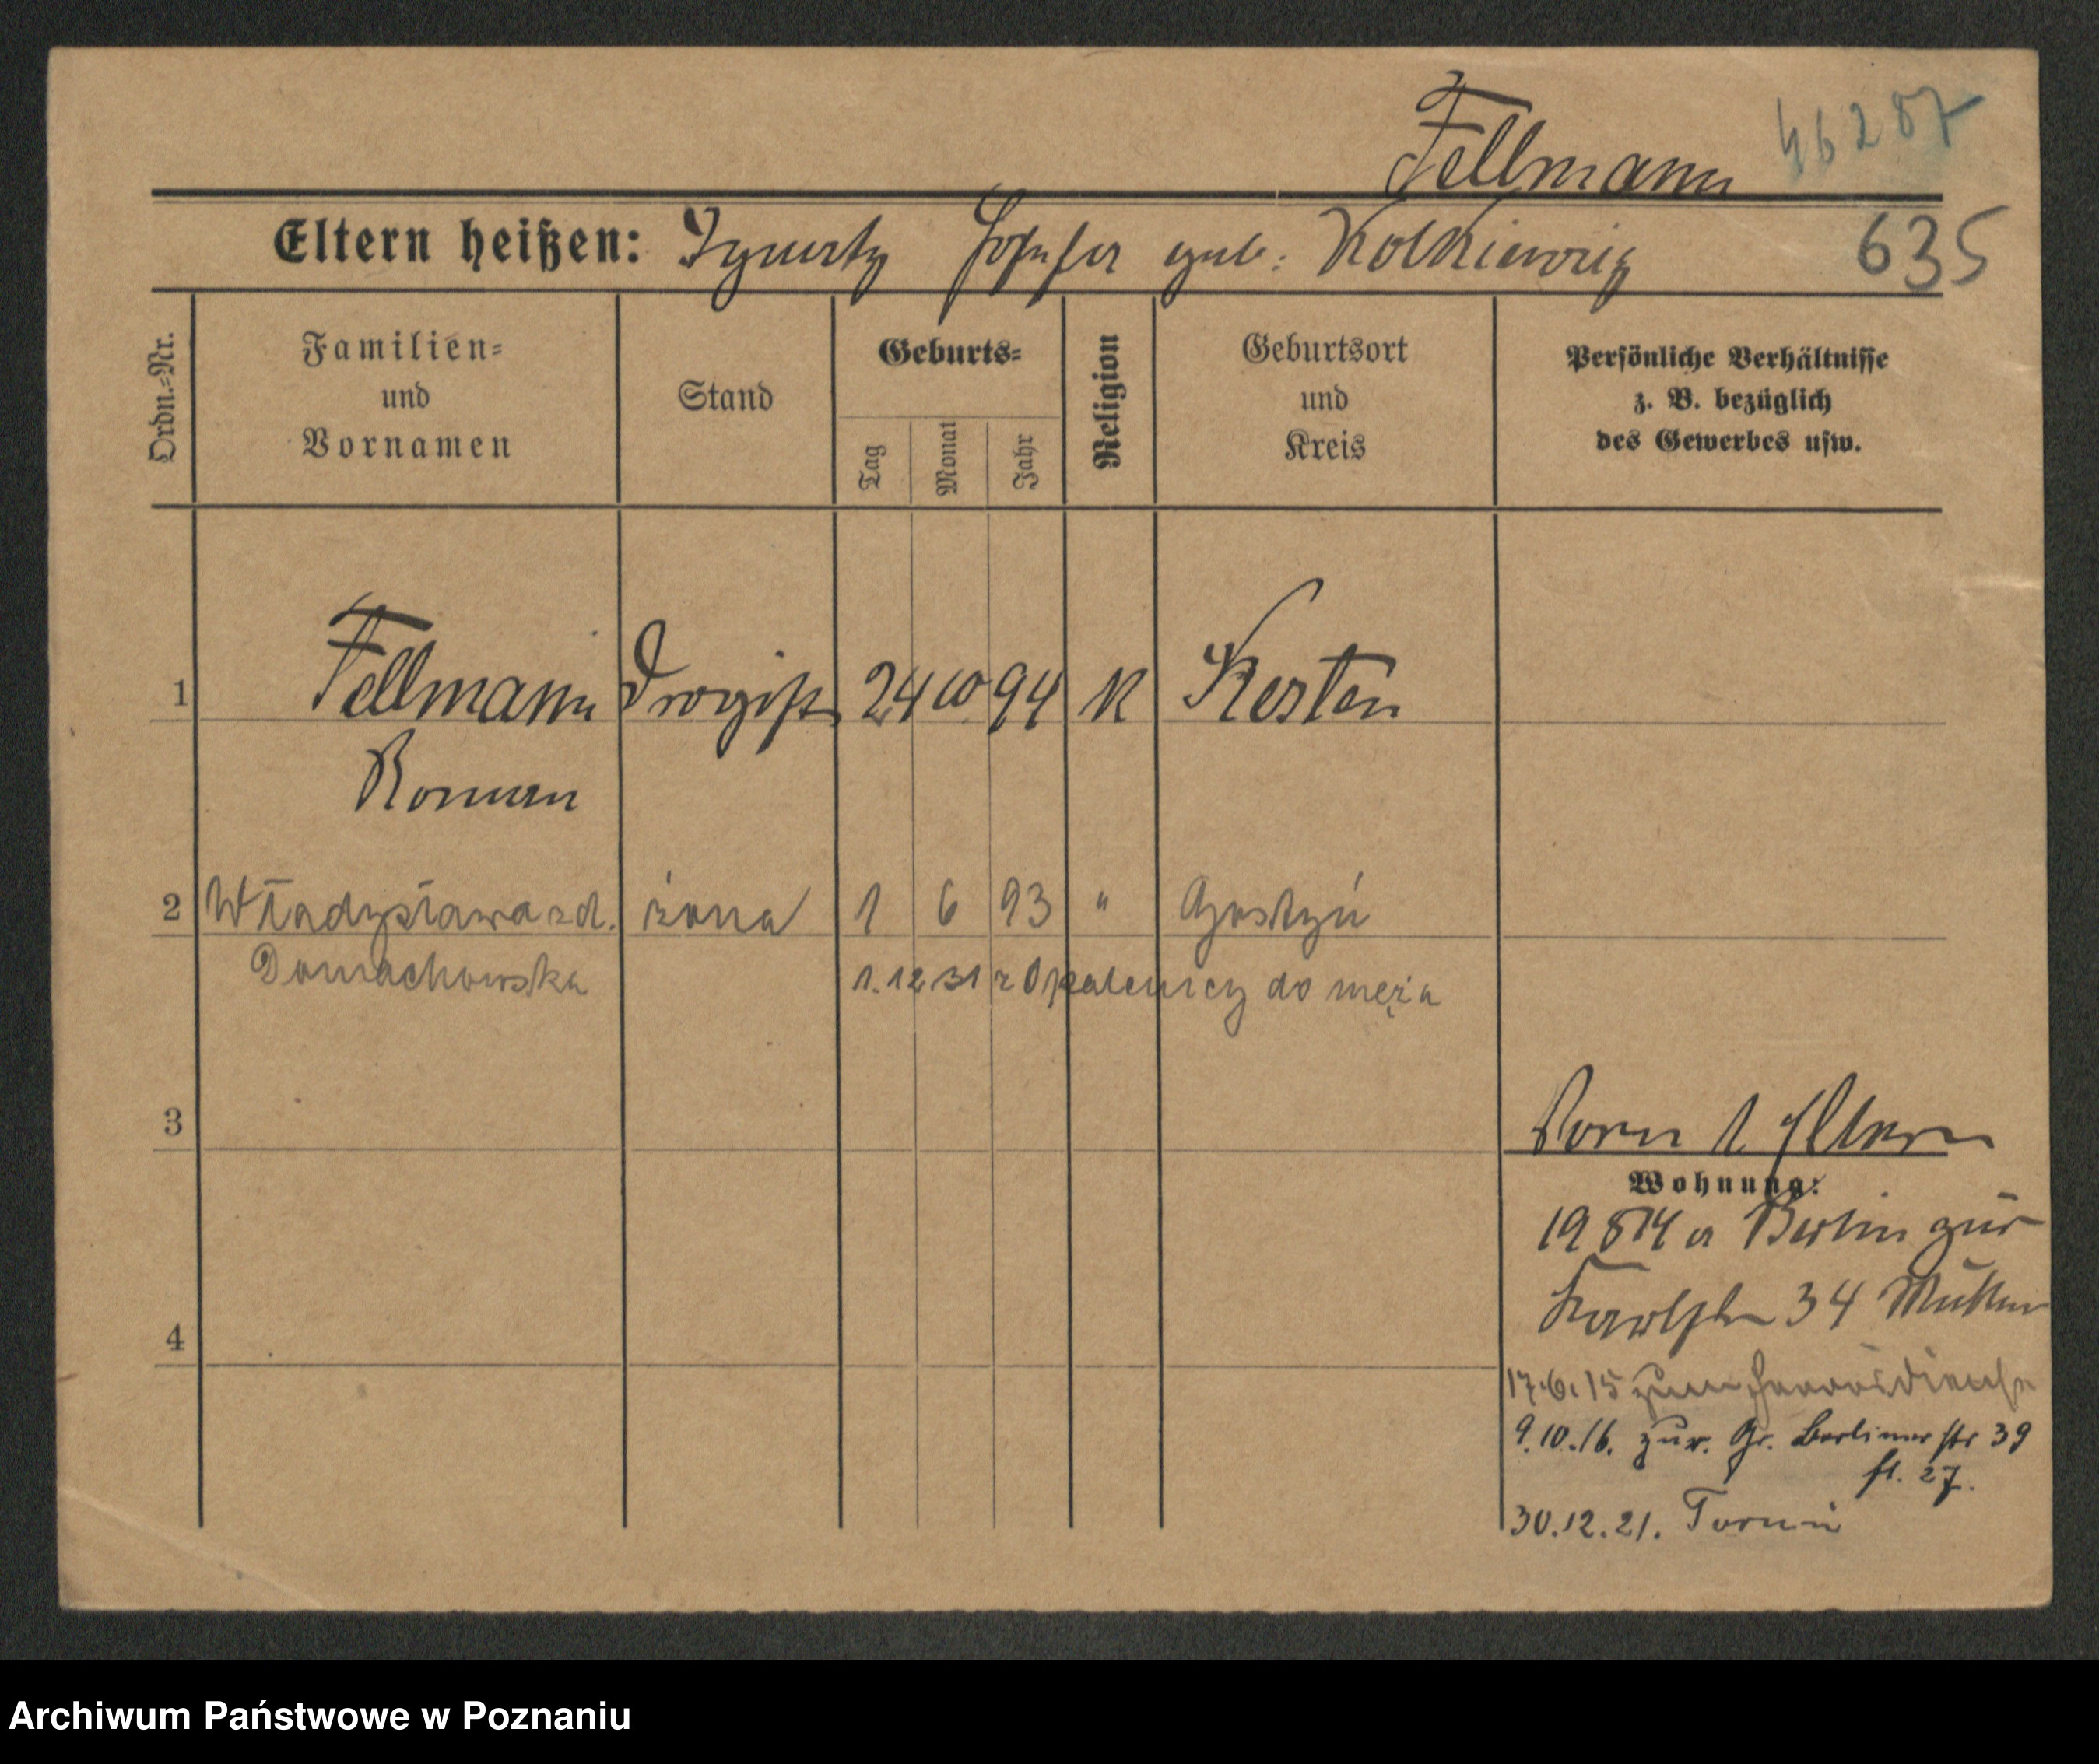 Fellmann 46287
Eltern heißen: Ignatz Josefa geb: Kolkiewicz 635
Ordn.=Nr.
Familien= und Vornamen
Stand
Geburts=
Tag Monat Jahr
Religion
Geburtsort und Kreis
Persönliche Verhältnisse z. B. bezüglich des Gewerbes usw.
1 Fellmann Drogist 24 10 94 K Kosten
Roman
2 Władysława zd. żona 1 6 93 " Gostyń
Domachowska 1.12 31 z Opalenicy do męża
3
Eltern
Wohnung:
19 8 14 a Berlin zur
34
4
17.6.15 zum Heeresdienst
9.10.16. zur. Gr. Berliner str 39
fl. 27.
30.12.21. Toruń
Archiwum Państwowe w Poznaniu